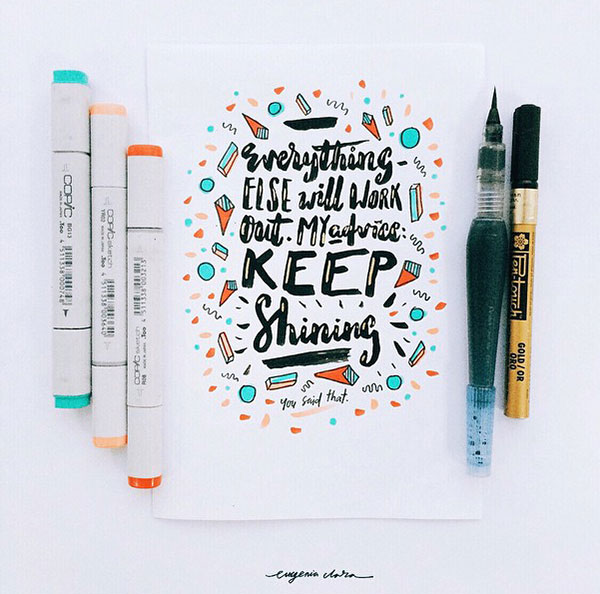 everything
ELSE will WORK
Out. MY advice:
KEEP
Shining
you said that.
COPIC
BG13
COPIC sketch
YR02
COPIC sketch
R08
Pen-touch
GOLD / OR
ORO
eugenia clara